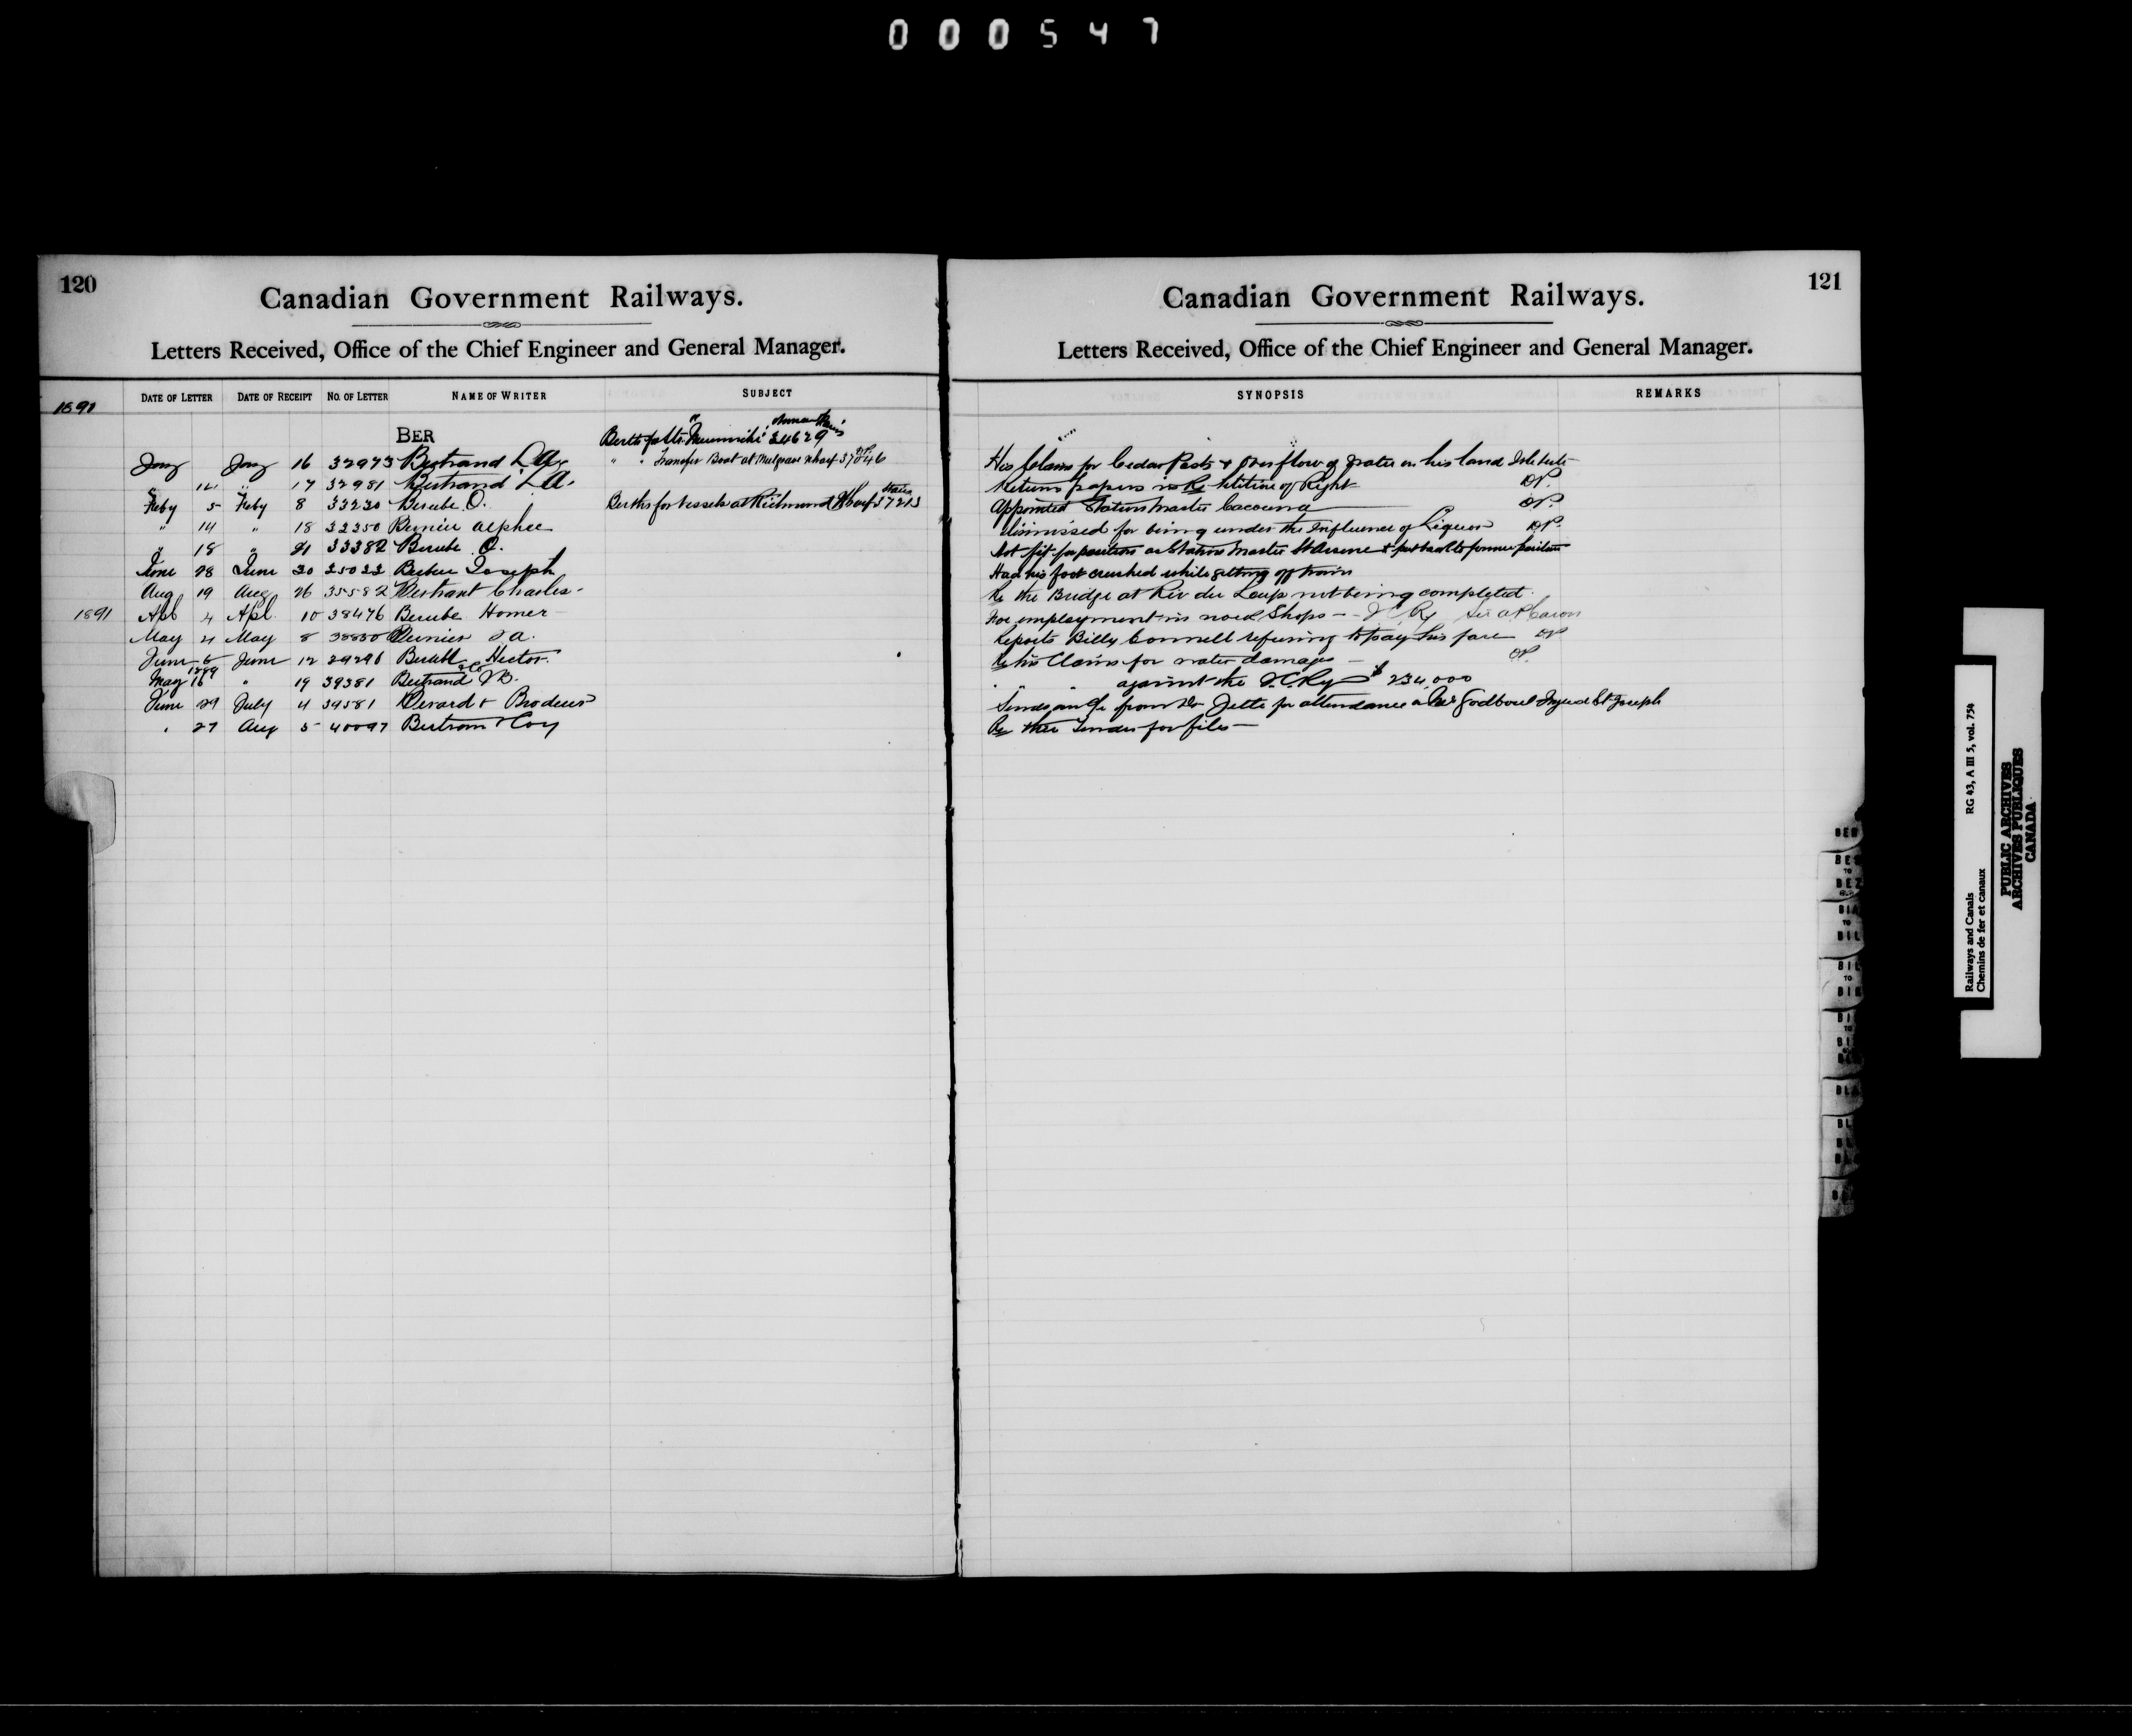 000547
120
Canadian Government Railways.
Letters Received, Office of the Chief Engineer and General Manager.
DATE OF LETTER DATE OF RECEIPT NO. OF LETTER NAME OF WRITER SUBJECT
BER
Berths for Str. 34629
Jany Jany 16 32973 Bertrand L A
" " Transfer Boat at Mulgrave Wharf 37846
" 17 32981 Bertrand L A.
Feby 5 Feby 8 33230 Berube O.
Berths for Vessels at Richmond Wharf 37213
" 14 " 18 33350 Bernier Alphee
" 18 " 21 33382 Berube O.
June 28 June 30 35022 Joseph
Aug 19 Aug 26 35582 Bertrant Charles
1891 Apl 4 Apl. 10 38476 Berube Homer
May 4 May 8 38850 Bernier J A.
June 6 June 12 39296 Hector.
May 16 1889 " 19 39381 Bertrand & Co
June 29 July 4 39581 Berard & Brodeur
" 27 Aug 5 40097 Bertram & Coy
121
Canadian Government Railways.
Letters Received, Office of the Chief Engineer and General Manager.
SYNOPSIS REMARKS
His Claim for Cedar Posts & Overflow of Water on his land
Returns papers in Re Petition of Right
Appointed Station Master Cacouna
Dismissed for being under the Influence of Liquor
Not fit for position as Station Master St Arsene & put back to former position
Had his foot crushed while getting off train
Re the Bridge at Riv du Loup not being completed.
For employment in Shops
Reports Billy Connell refusing to pay his fare
Re his Claim for water damages
" " against the I.C.Ry $ 234,000
Sends a/c from Dr Jette for attendance Godbout Injured St Joseph
Re their Tender for files
BER
BES
TO
BEZ
BIA
TO
BIL
BIL
TO
BIN
BLA
Railways and Canals
Chemins de fer et canaux
RG 43, A III 5, vol. 754
PUBLIC ARCHIVES
ARCHIVES PUBLIQUES
CANADA